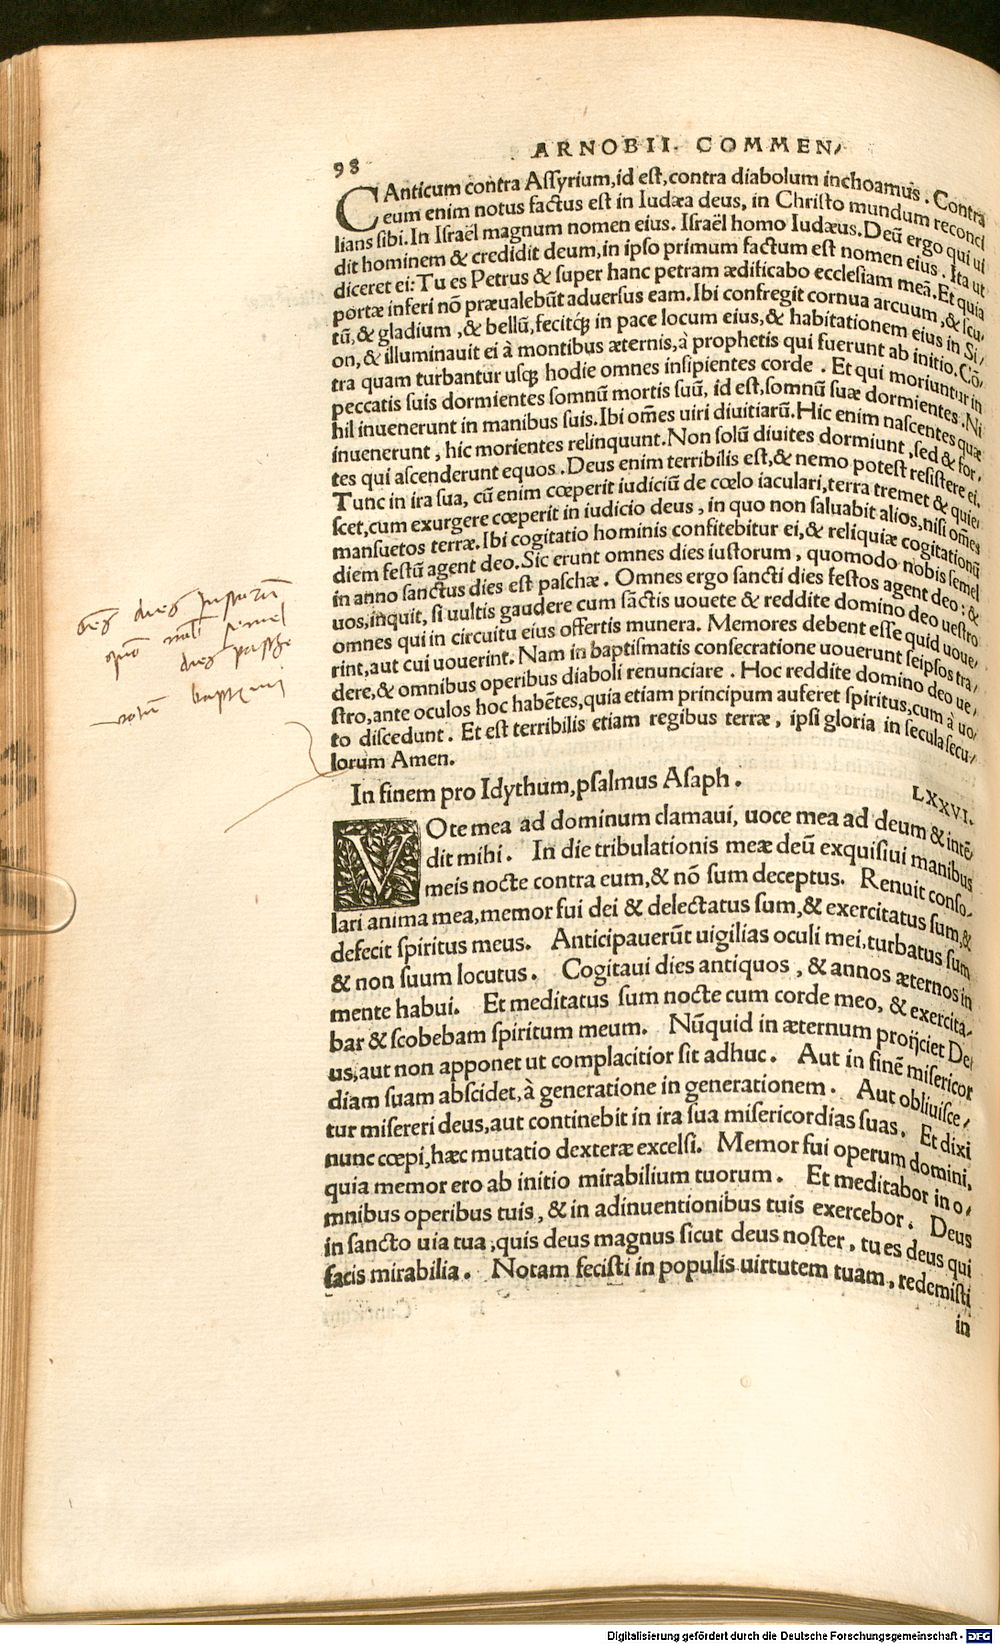 98
ARNOBII. COMMEN/
CAnticum contra Aſſyrium,id eſt,contra diabolum inchoamus. Contra
eum enim notus factus eſt in Iudæa deus, in Chriſto mundum reconci
lians ſibi.In Iſraël magnum nomen eius. Iſraël homo Iudæus.Deũ ergo qui ui
dit hominem & credidit deum,in ipſo primum factum eſt nomen eius. Ita ut
diceret ei: Tu es Petrus & ſuper hanc petram ædificabo eccleſiam meã.Et quia
portæ inferi nõ præualebũt aduerſus eam.Ibi confregit cornua arcuum,& ſcu/
tũ,& gladium,& bellũ,fecitq́ꝫ in pace locum eius,& habitationem eius in Si/
on,& illuminauit ei à montibus æternis,à prophetis qui fuerunt ab initio.Cõ/
tra quam turbantur uſqꝫ hodie omnes inſipientes corde. Et qui moriuntur in
peccatis ſuis dormientes ſomnũ mortis ſuũ, id eſt,ſomnũ ſuæ dormientes.Ni
hil inuenerunt in manibus ſuis.Ibi om̃es uiri diuitiarũ.Hic enim naſcentes quæ
inuenerunt, hic morientes relinquunt.Non ſolũ diuites dormiunt,ſed & for/
tes qui aſcenderunt equos.Deus enim terribilis eſt,& nemo poteſt reſiſtere ei.
Tunc in ira ſua, cũ enim cœperit iudiciũ de cœlo iaculari,terra tremet & quie/
ſcet,cum exurgere cœperit in iudicio deus, in quo non ſaluabit alios,niſi om̃es
manſuetos terræ.Ibi cogitatio hominis confitebitur ei,& reliquiæ cogitationũ
diem feſtũ agent deo.Sic erunt omnes dies iuſtorum, quomodo nobis ſemel
in anno ſanctus dies eſt paſchæ. Omnes ergo ſancti dies feſtos agent deo: &
uos,inquit, ſi uultis gaudere cum ſãctis uouete & reddite domino deo ueſtro
omnes qui in circuitu eius offertis munera. Memores debent eſſe quid uoue/
rint,aut cui uouerint. Nam in baptiſmatis conſecratione uouerunt ſeipſos tra/
dere,& omnibus operibus diaboli renunciare. Hoc reddite domino deo ue/
ſtro,ante oculos hoc habẽtes,quia etiam principum auferet ſpiritus,cum à uo/
to diſcedunt. Et eſt terribilis etiam regibus terræ, ipſi gloria in ſecula ſecu/
lorum Amen.
dies iustorum
semel
dies pasche
votum
In finem pro Idythum,pſalmus Aſaph.
LXXVI.
VOte mea ad dominum clamaui, uoce mea ad deum & intẽ
dit mihi. In die tribulationis meæ deũ exquiſiui manibus
meis nocte contra eum,& nõ ſum deceptus. Renuit conſo/
lari anima mea,memor fui dei & delectatus ſum,& exercitatus ſum,&
defecit ſpiritus meus. Anticipauerũt uigilias oculi mei,turbatus ſum
& non ſuum locutus. Cogitaui dies antiquos, & annos æternos in
mente habui. Et meditatus ſum nocte cum corde meo, & exercita/
bar & ſcobebam ſpiritum meum. Nũquid in æternum proijciet De/
us,aut non apponet ut complacitior ſit adhuc. Aut in finẽ miſericor
diam ſuam abſcidet,à generatione in generationem. Aut obliuiſce/
tur miſereri deus,aut continebit in ira ſua miſericordias ſuas. Et dixi
nunc cœpi,hæc mutatio dexteræ excelſi. Memor fui operum domini,
quia memor ero ab initio mirabilium tuorum. Et meditabor in o/
mnibus operibus tuis, & in adinuentionibus tuis exercebor. Deus
in ſancto uia tua,quis deus magnus ſicut deus noſter, tu es deus qui
facis mirabilia. Notam feciſti in populis uirtutem tuam, redemiſti
in
Digitalisierung gefördert durch die Deutsche Forschungsgemeinschaft - DFG